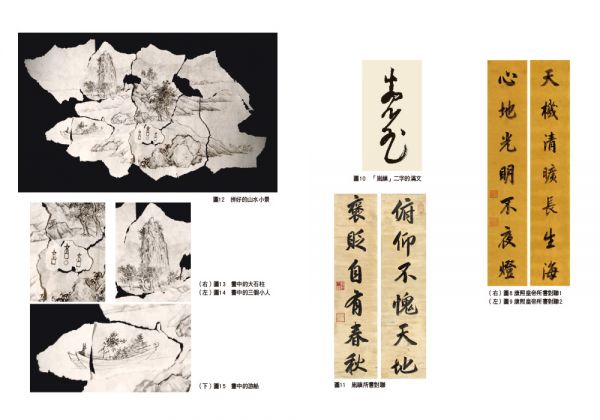 圖12 拼好的山水小景
(右)圖13 畫中的大石柱
(左)圖14 畫中的三個小人
(下)圖15 畫中的游船
圖10 「胤禛」二字的滿文
俯仰不愧天地
褒貶自有春秋
圖11 胤禛所書對聯
天機清曠長生海
心地光明不夜燈
(右)圖8 康熙皇帝所書對聯1
(左)圖9 康熙皇帝所書對聯2